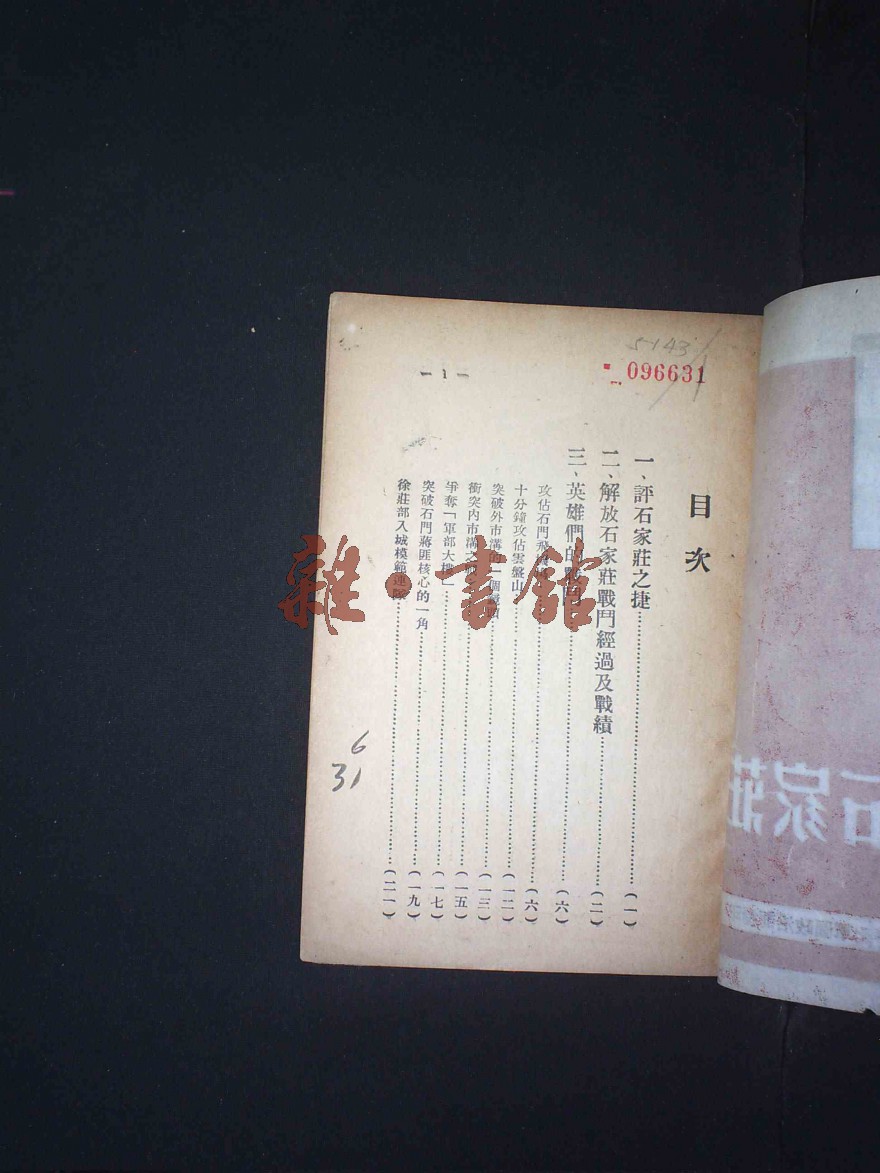 5143/1
096631
目次
一、評石家莊之捷…………(一)
二、解放石家莊戰鬥經過及戰績…………(二)
三、英雄們的戰鬥…………(六)
攻佔石門飛機場…………(六)
十分鐘攻佔雲盤山…………(一二)
突破外市溝的一個…………(一三)
衝突內市溝之…………(一五)
爭奪「軍部大樓」…………(一七)
突破石門蔣匪核心的一角…………(一九)
徐莊部入城模範連隊…………(二一)
— 1 —
6
31
雜·書館
石家莊